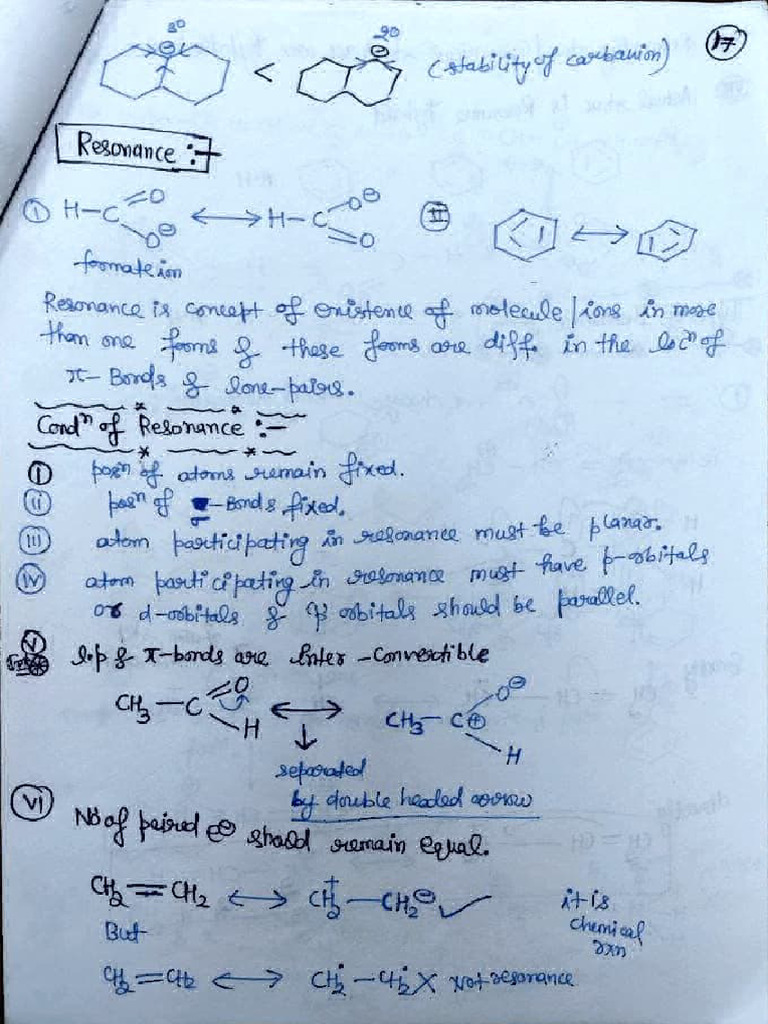 17
3° 2°
⊖ < ⊖ (stability of carbanion)
Resonance :-
① H-C=O O⊖ ⟷ H-C-O⊖ =O Ⅱ ⟷
formate ion
Resonance is concept of existence of molecule/ions in more
than one forms & these forms are diff. in the locⁿ of
π-Bonds & lone-pairs.
Condⁿ of Resonance :-
① posⁿ of atoms remain fixed.
ⅱ posⁿ of σ-Bonds fixed.
ⅲ atom participating in resonance must be planar.
ⅳ atom participating in resonance must have p-orbitals
or d-orbitals & p orbitals should be parallel.
ⅴ l.p & π-bonds are inter-convertible
CH₃-C=O H ⟷ CH₃-C⊕ O⊖ H
separated
by double headed arrow
ⅵ No of paired e⊖ should remain equal.
CH₂=CH₂ ⟷ CH₂⁺-CH₂⊖ ✓ it is
But chemical
rxn
CH₂=CH₂ ⟷ ĊH₂-ĊH₂ X Not resonance